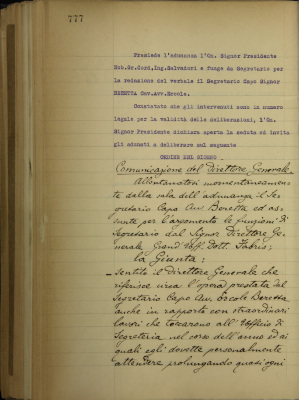 777
Presiede l'adunanza l'On. Signor Presidente
Nob.Gr.Cord.Ing.Salvadori e funge da Segretario per
la redazione del verbale il Segretario Capo Signor
BERETTA Cav.Avv.Ercole.
Constatato che gli intervenuti sono in numero
legale per la validità delle deliberazioni, l'On.
Signor Presidente dichiara aperta la seduta ed invita
gli adunati a deliberare sul seguente
ORDINE DEL GIORNO
Comunicazione del Direttore Generale.
Allontanatosi momentaneamen-
te dalla sala dell'adunanza il Se-
gretario Capo Avv. Beretta ed as-
sunte per l'argomento le funzioni di
Segretario dal Signor Direttore Ge-
nerale Grand'Uff. Dott. Fabris;
la Giunta:
Sentito il Direttore Generale che
riferisce circa l'opera prestata dal
Segretario Capo Avv. Ercole Beretta
anche in rapporto con straordinari
lavori che toccarono all'Ufficio di
Segreteria nel corso dell'anno ed ai
quali egli dovette personalmente
attendere prolungando quasi ogni